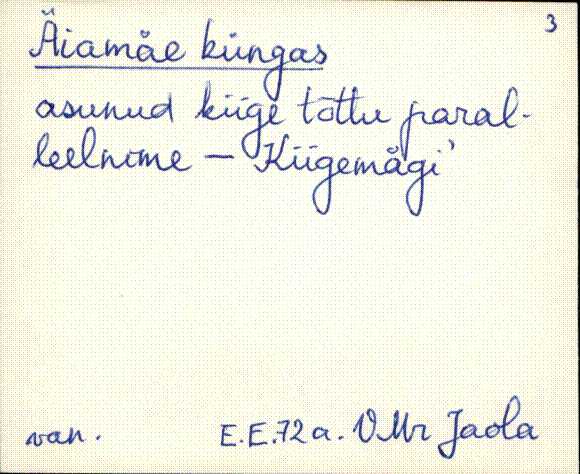 3
Äiamäe küngas
asunud kiige tõttu paral-
leelnime — Kiigemägi'
van. E.E.72 a. V Mr Jaola